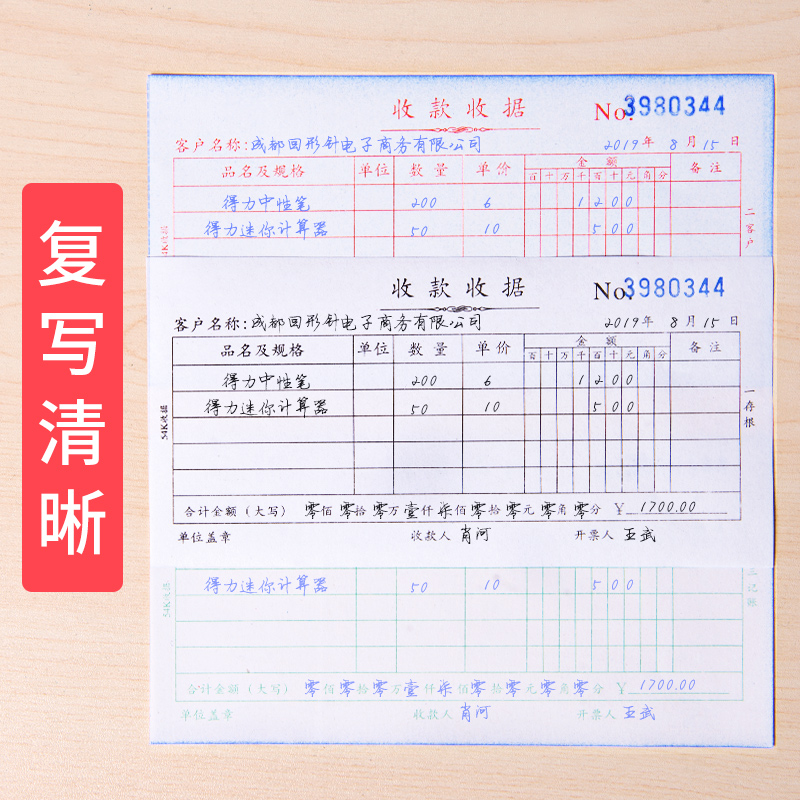 复写清晰
收款收据 No. 3980344
客户名称:成都回形针电子商务有限公司 2019年 8月15日
品名及规格 单位 数量 单价 金额 备注
百 十 万 千 百 十 元 角 分
得力中性笔 200 6 1 2 0 0
得力迷你计算器 50 10 5 0 0
二客户
收款收据 No. 3980344
客户名称:成都回形针电子商务有限公司 2019年 8月15日
品名及规格 单位 数量 单价 金额 备注
百 十 万 千 百 十 元 角 分
得力中性笔 200 6 1 2 0 0
得力迷你计算器 50 10 5 0 0
54K收据
一存根
合计金额(大写) 零佰零拾零万壹仟柒佰零拾零元零角零分 ¥ 1700.00
单位盖章 收款人 肖河 开票人 王武
得力迷你计算器 50 10 5 0 0
54K收据
三记账
合计金额(大写) 零佰零拾零万壹仟柒佰零拾零元零角零分 ¥ 1700.00
单位盖章 收款人 肖河 开票人 王武